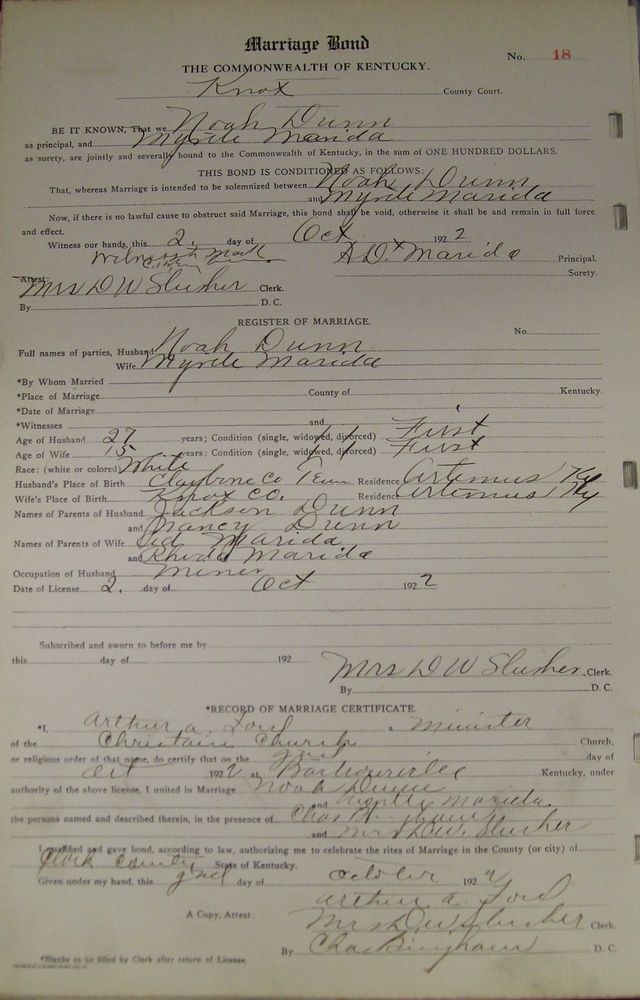 Marriage Bond
No. 18
THE COMMONWEALTH OF KENTUCKY.
Knox County Court.
BE IT KNOWN, That we Noah Dunn
as principal, and Myrtle Marida
as surety, are jointly and severally bound to the Commonwealth of Kentucky, in the sum of ONE HUNDRED DOLLARS.
THIS BOND IS CONDITIONED AS FOLLOWS:
That, whereas Marriage is intended to be solemnized between Noah Dunn
and Myrtle Marida
Now, if there is no lawful cause to obstruct said Marriage, this bond shall be void, otherwise it shall be and remain in full force
and effect.
Witness our hands, this 2. day of Oct 1922
Witness to Mark A.D. x Marida Principal.
Surety.
Attest:
Mrs D W Slusher Clerk.
By D. C.
REGISTER OF MARRIAGE.
No.
Full names of parties, Husband Noah Dunn
Wife Myrtle Marida
*By Whom Married
*Place of Marriage County of Kentucky.
*Date of Marriage
*Witnesses and
Age of Husband 27 years; Condition (single, widowed, divorced) First
Age of Wife 15 years; Condition (single, widowed, divorced) First
Race: (white or colored) White
Husband's Place of Birth Claiborne Co Tenn Residence Artemus Ky
Wife's Place of Birth Knox Co. Residence Artemus Ky
Names of Parents of Husband Jackson Dunn
and Nancy Dunn
Names of Parents of Wife Marida
and Rhoda Marida
Occupation of Husband Miner
Date of License 2. day of Oct 1922
Subscribed and sworn to before me by
this day of 192
Mrs D W Slusher Clerk.
By D. C.
*RECORD OF MARRIAGE CERTIFICATE.
*I, Arthur A. Ford a Minister
of the Christain Church Church,
or religious order of that name, do certify that on the 2nd day of
Oct 1922 at Barbourville Kentucky, under
authority of the above license, I united in Marriage Noah Dunn
and Marida
the persons named and described therein, in the presence of Chas Bingham
and Mrs D.W. Slusher
I qualified and gave bond, according to law, authorizing me to celebrate the rites of Marriage in the County (or city) of
County State of Kentucky.
Given under my hand, this 2nd day of October 1922
Arthur A. Ford
A Copy, Attest: Mrs D W Slusher Clerk.
By Chas Bingham D. C.
*Blanks to be filled by Clerk after return of License.